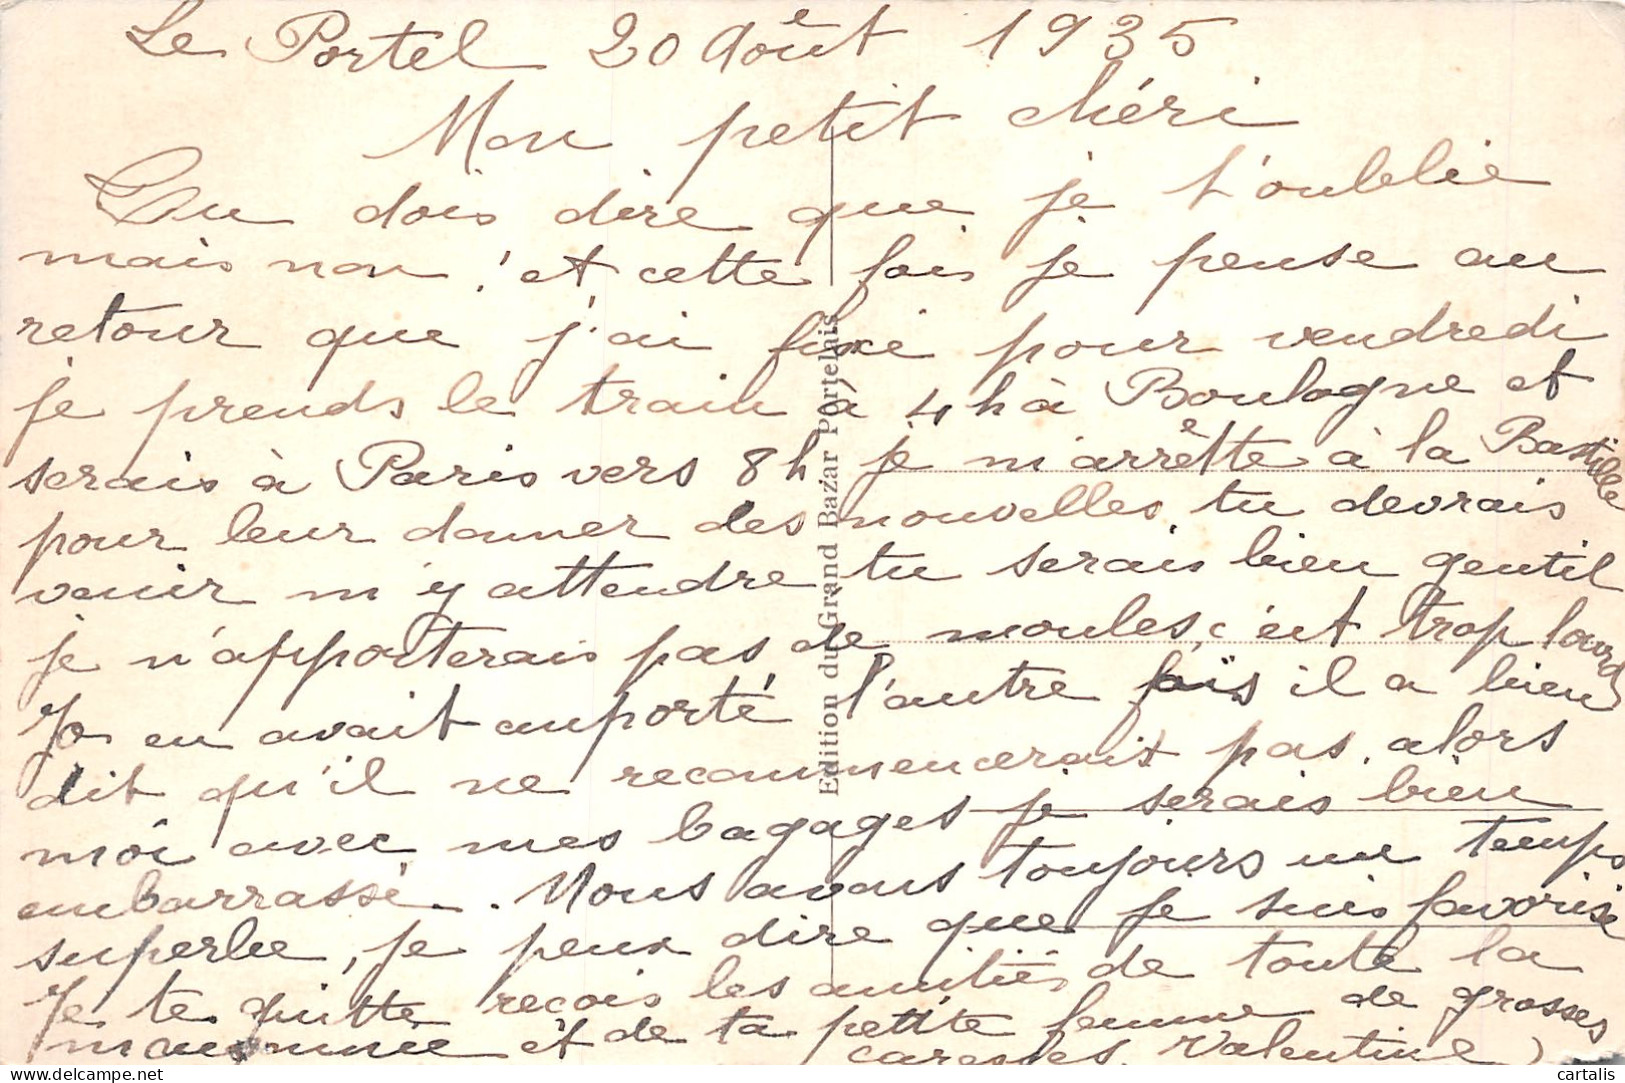 Le Portel 20 Août 1935
Mon petit chéri
Tu dois dire que je t'oublie
mais non ! et cette fois je pense au
retour que j'ai fixé pour vendredi
je prends le train à 4 h à Boulogne et
serais à Paris vers 8h je m'arrêtte à la Bastille
pour leur donner des nouvelles, tu devrais
venir m'y attendre tu serais bien gentil
je n'apporterais pas de moules, c'est trop lourd
Jo en avait emporté l'autre fois il a bien
dit qu'il ne recommencerait pas, alors
moi avec mes bagages je serais bien
embarrassé. Nous avons toujours un temps
superbe, je peux dire que je suis favorisé
Je te quitte reçois les amitiés de toute la
maisonnée et de ta petite femme de grosses
caresses. Valentine
Edition du Grand Bazar Portelais
cartalis